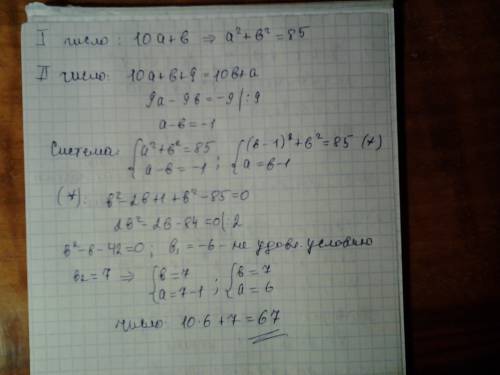 I число: 10a+b ⇒ a²+b²=85
II число: 10a+b+9=10b+a
9a-9b=-9 |:9
a-b=-1
Система: { a²+b²=85 a-b=-1 ; { (b-1)²+b²=85 (*) a=b-1
(*): b²-2b+1+b²-85=0
2b²-2b-84=0 |:2
b²-b-42=0; b₁=-6 - не удовл. условию
b₂=7 ⇒ { b=7 a=7-1 ; { b=7 a=6
число: 10·6+7=67